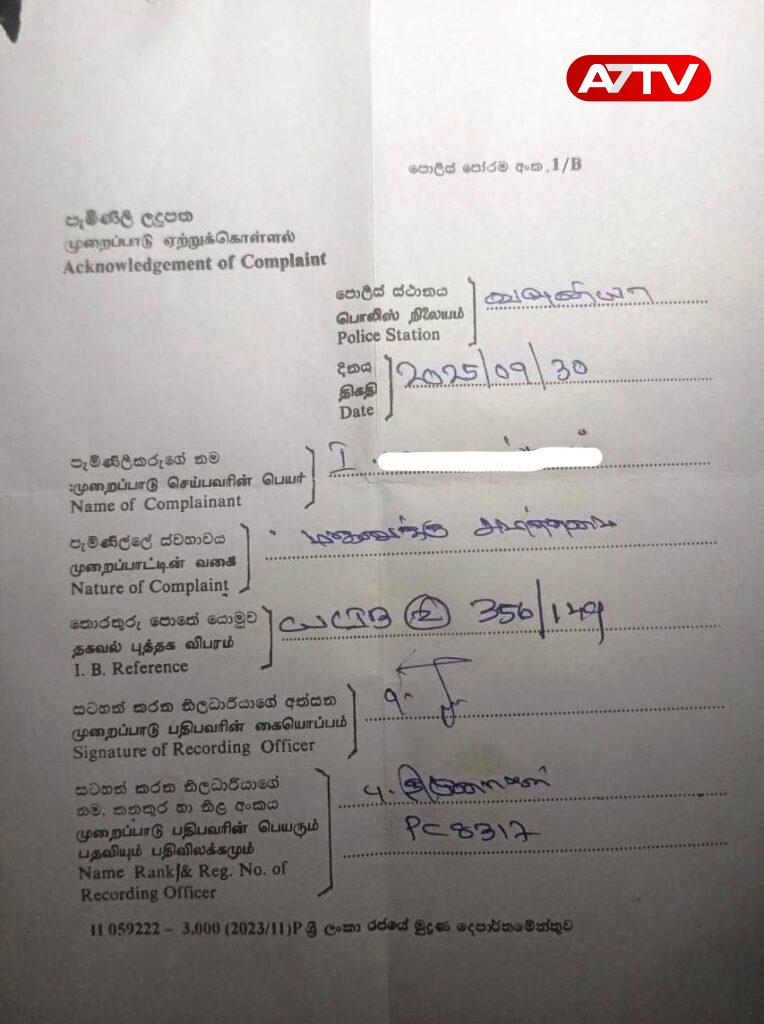 A7TV
පොලිස් පෝරම අංක.1/B
පැමිණිලි ලදුපත
முறைப்பாடு ஏற்றுக்கொள்ளல்
Acknowledgement of Complaint
පොලිස් ස්ථානය
பொலிஸ் நிலையம்
Police Station
வவுனியா
දිනය
திகதி
Date
2025/09/30
පැමිණිලිකරුගේ නම
முறைப்பாடு செய்பவரின் பெயர்
Name of Complainant
I.
පැමිණිල්ලේ ස්වභාවය
முறைப்பாட்டின் வகை
Nature of Complaint
තොරතුරු පොතේ යොමුව
தகவல் புத்தக விபரம்
I. B. Reference
CIB 2 356/149
සටහන් කරන නිලධාරියාගේ අත්සන
முறைப்பாடு பதிபவரின் கையொப்பம்
Signature of Recording Officer
සටහන් කරන නිලධාරියාගේ
නම, තනතුර හා නිළ අංකය
முறைப்பாடு பதிபவரின் பெயரும்
பதவியும் பதிவிலக்கமும்
Name Rank & Reg. No. of
Recording Officer
PC 8317
11 059222 – 3,000 (2023/11) P ශ්‍රී ලංකා රජයේ මුද්‍රණ දෙපාර්තමේන්තුව